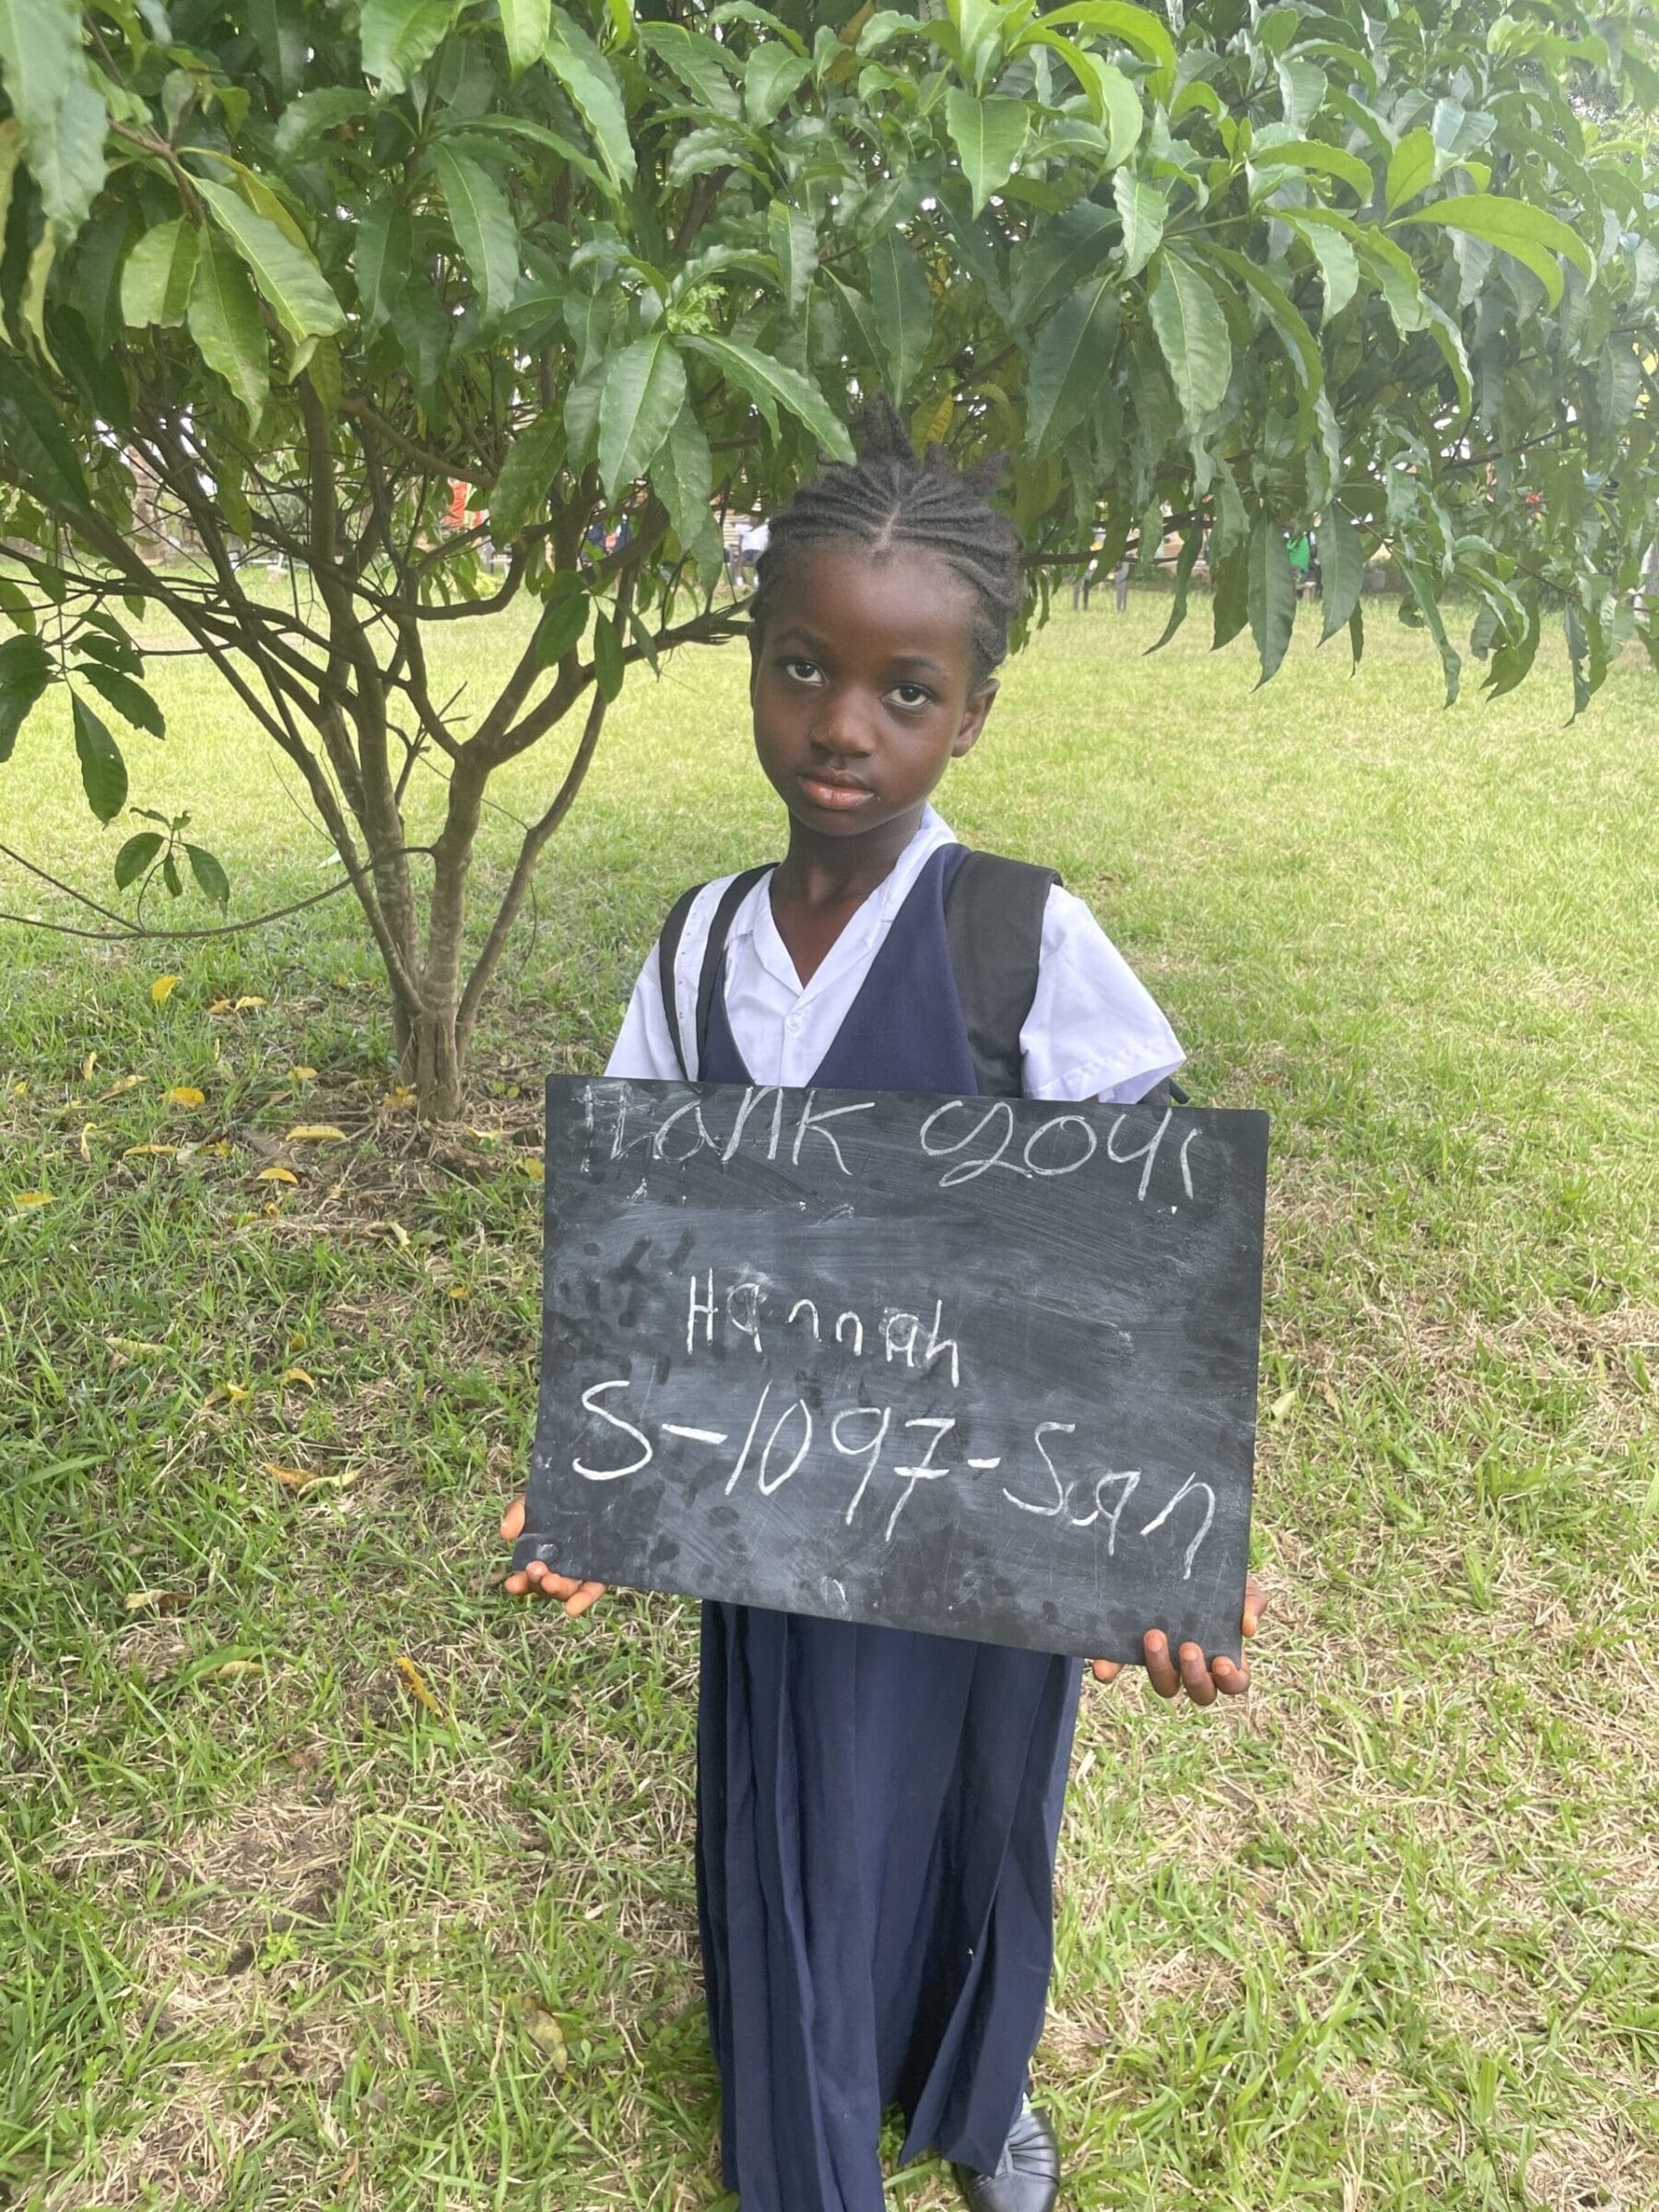 Thank you!
Hannah
S-1097-San